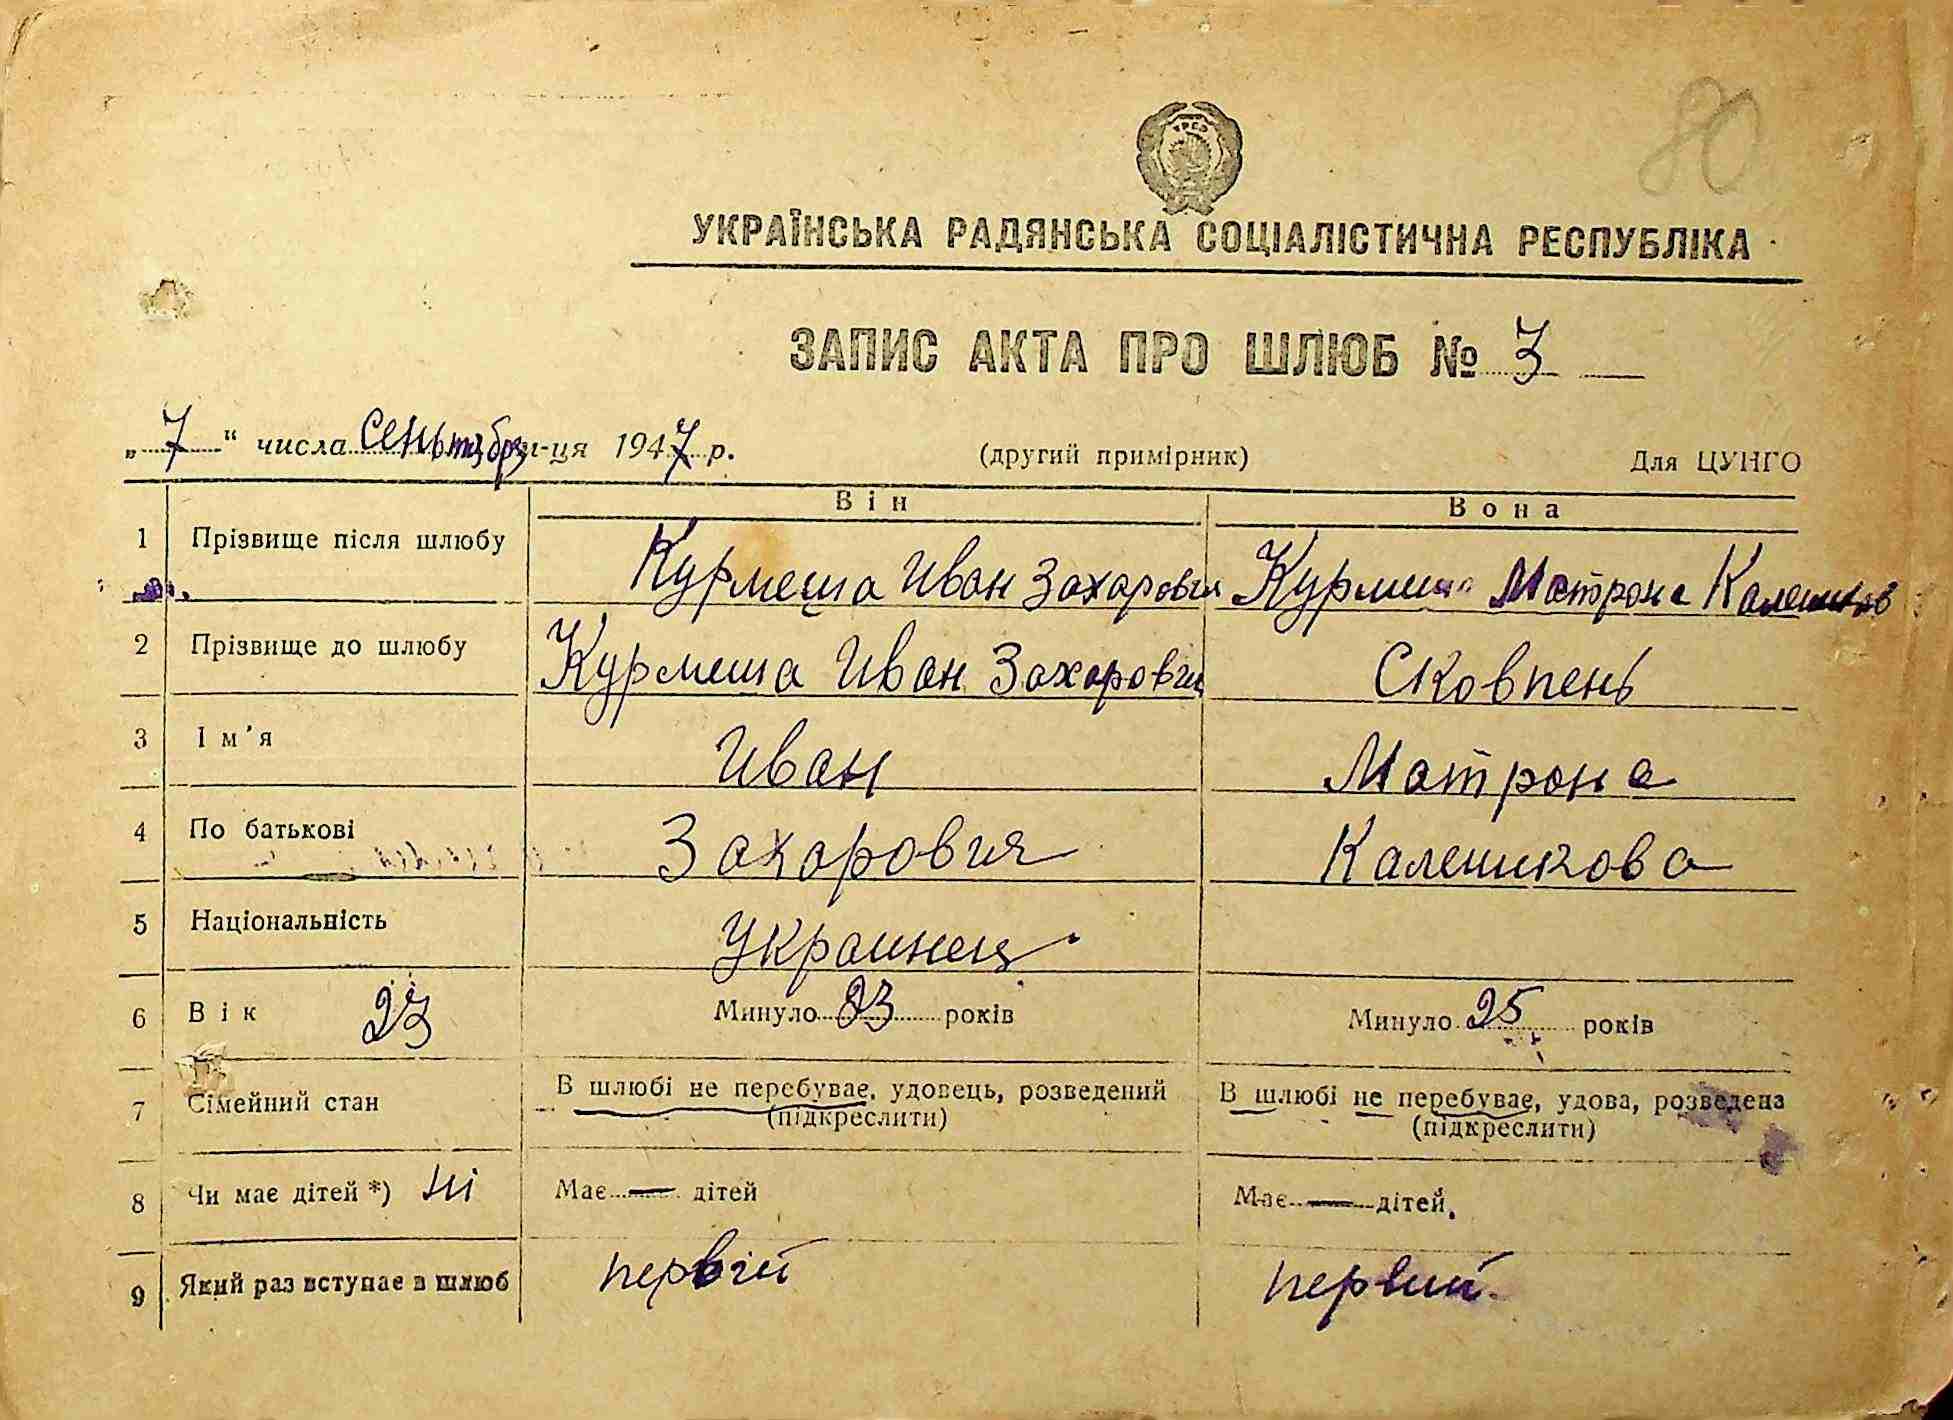 80
УРСР
УКРАЇНСЬКА РАДЯНСЬКА СОЦІАЛІСТИЧНА РЕСПУБЛІКА
ЗАПИС АКТА ПРО ШЛЮБ № 3
„7“ числа сентября-ця 1947 р. (другий примірник) Для ЦУНГО
Він Вона
1 Прізвище після шлюбу Курмеша Иван Захаровия Курмеша Матрона Калеников
2 Прізвище до шлюбу Курмеша Иван Захаровия Сковпень
3 Ім'я Иван Матрона
4 По батькові Захаровия Калешикова
5 Національність Украинец
6 Вік 23 Минуло 23 років Минуло 25 років
7 Сімейний стан В шлюбі не перебуває, удовець, розведений В шлюбі не перебуває, удова, розведена
(підкреслити) (підкреслити)
8 Чи має дітей *) ні Має — дітей Має — дітей.
9 Який раз вступає в шлюб первий первий